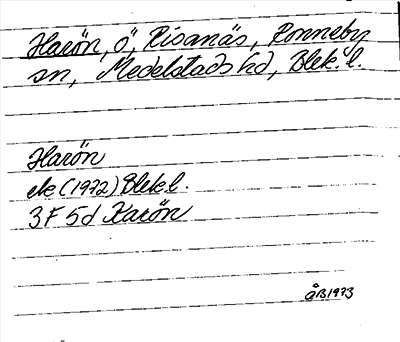 Harön, ö, Risanäs, Ronneby
sn, Medelstads hd, Blek. l.
Harön
ek (1972) Blek l.
3F 5d Karön
åB 1973